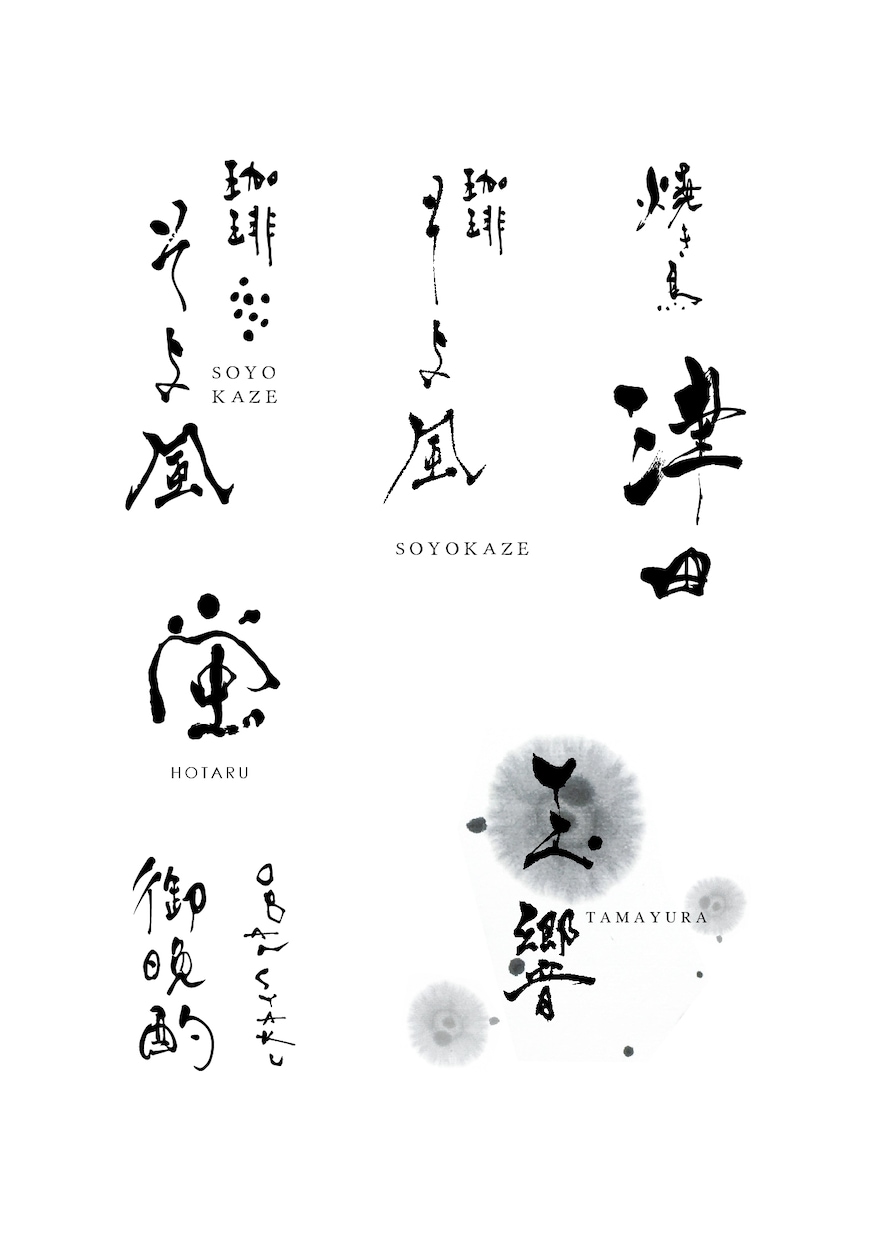 珈琲
そよ風
SOYO
KAZE
珈琲
そよ風
SOYOKAZE
焼き鳥
津田
蛍
HOTARU
御晩酌
OBANSYAKU
玉響
TAMAYURA